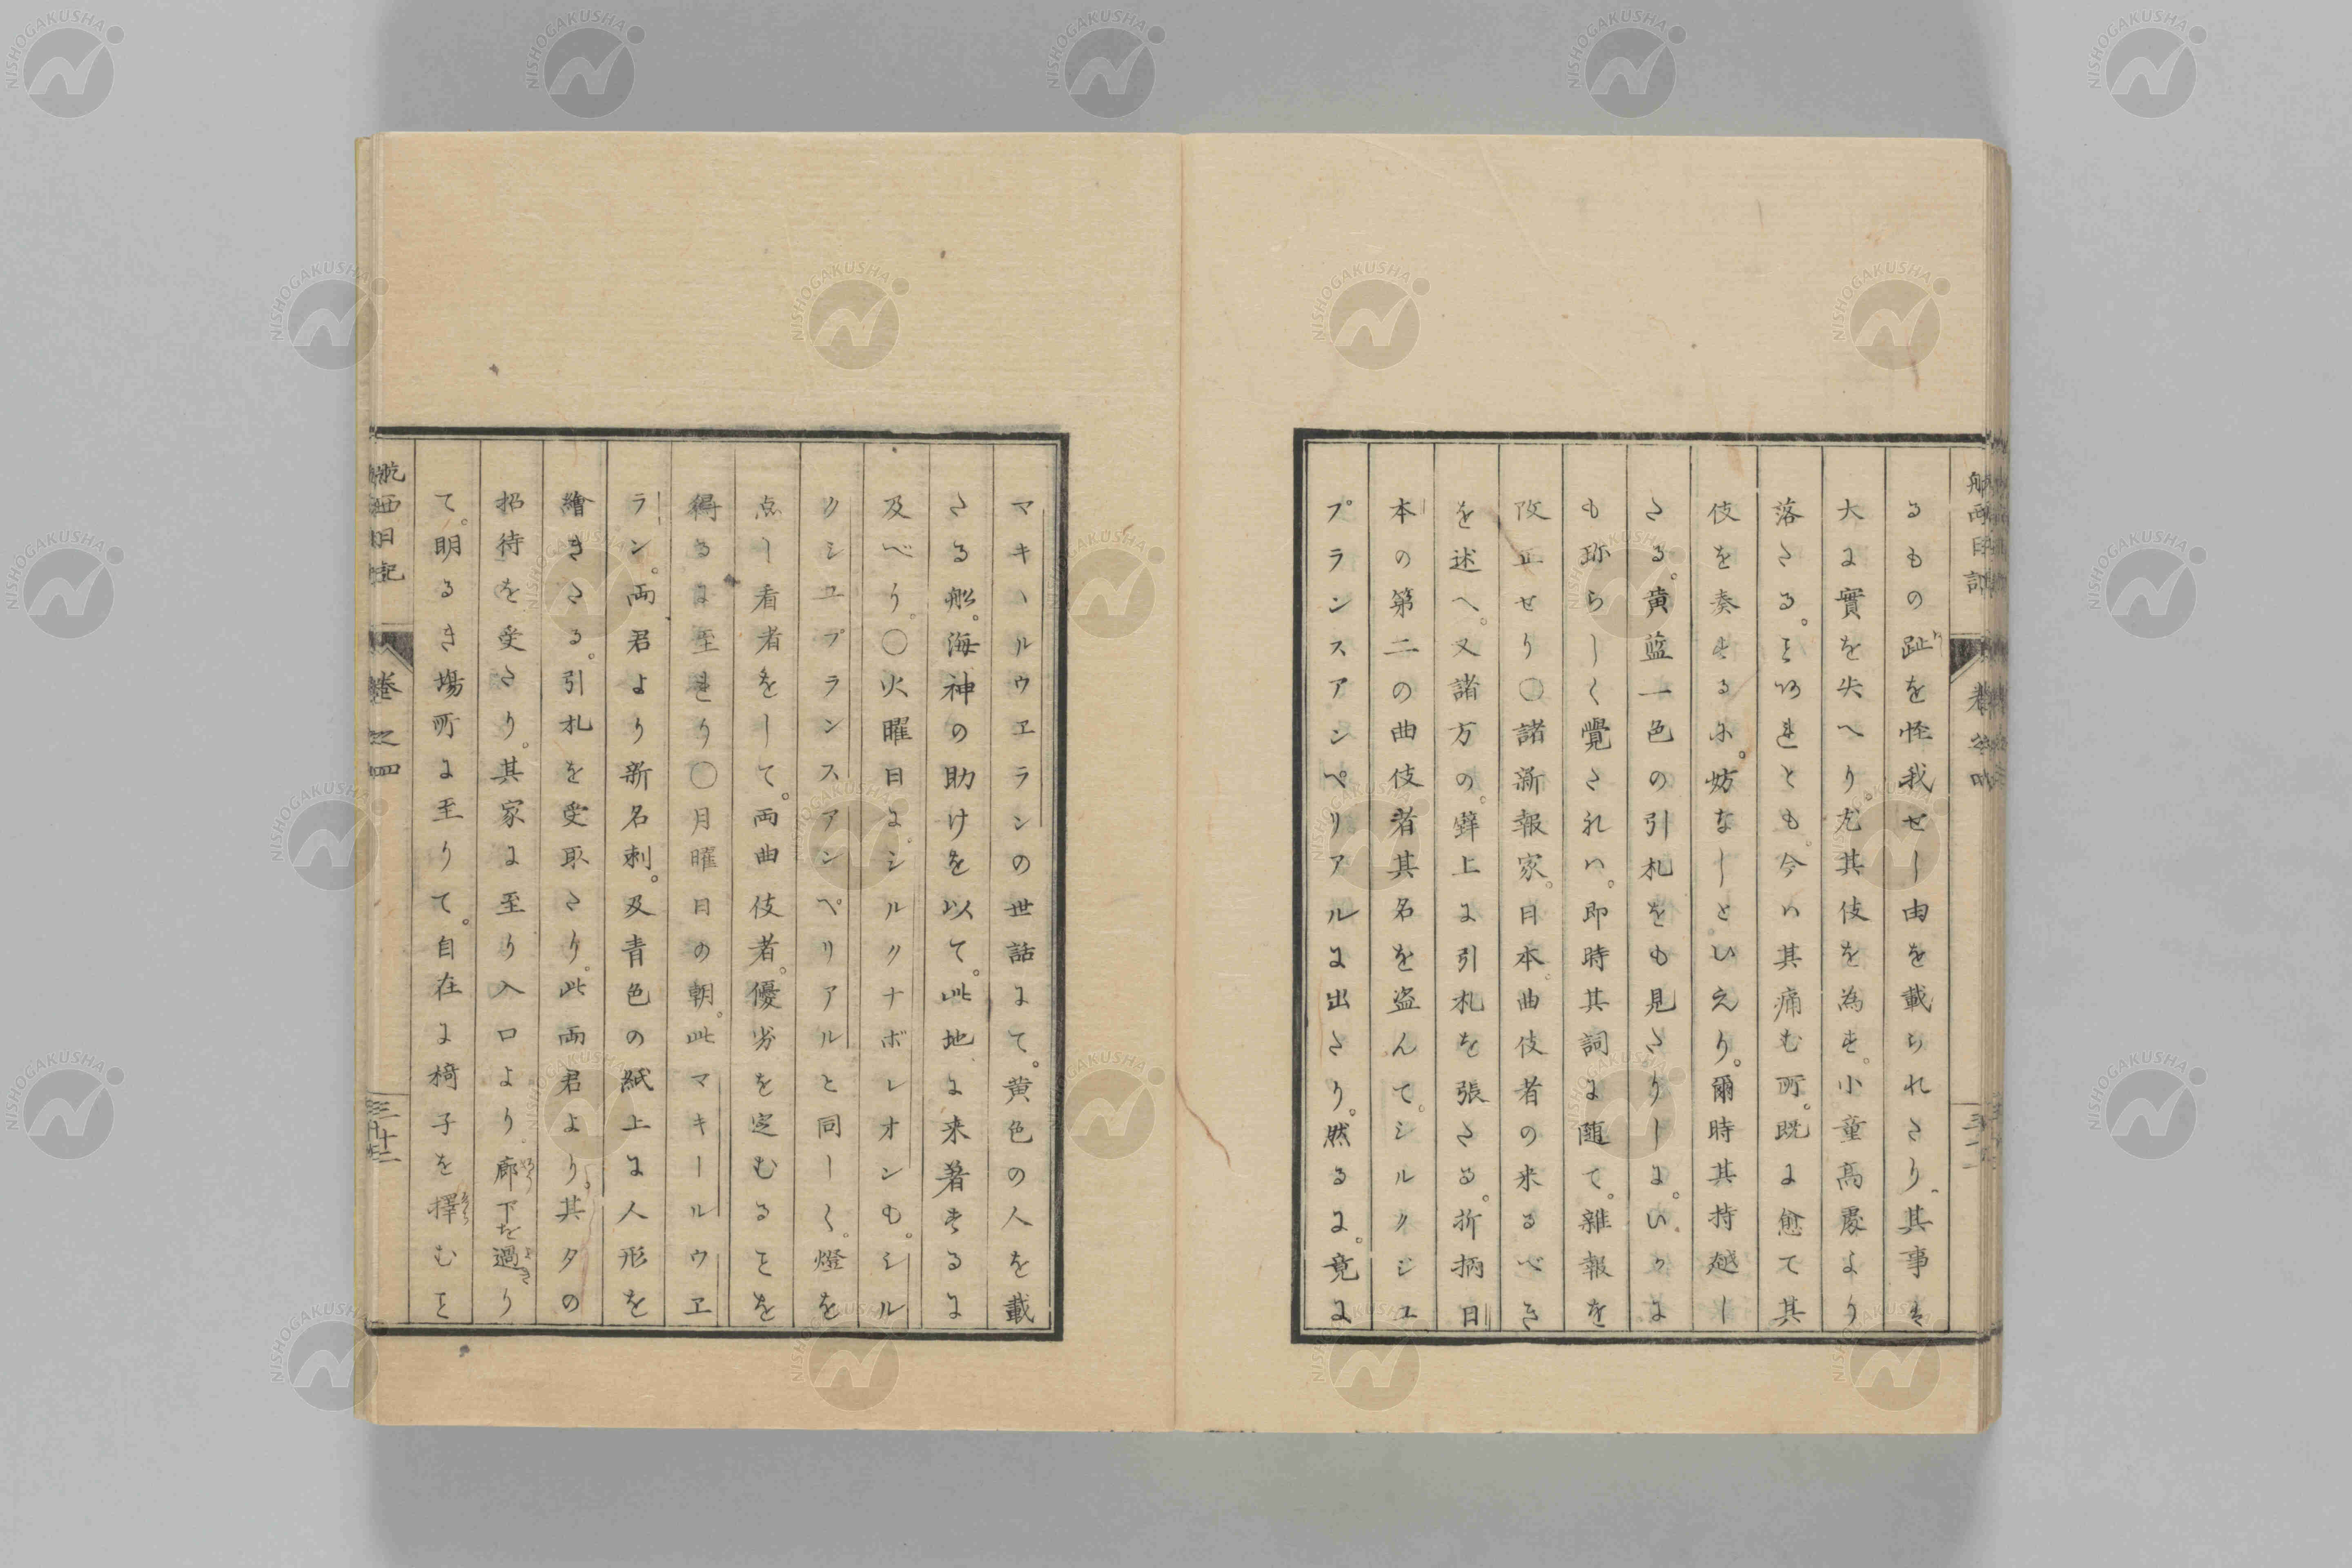 るもの趾を怪我せし由を載られたり。其事は
大に實を失へり。尤其伎を為せ小童高處より
落たる。されとも。今ハ其痛む所。既に愈て其
伎を奏するに。妨なしといえり。爾時其持越し
たる。黄藍二色の引札をも見たりしに。いかに
も珎らしく覺されハ。即時其詞に随て。雜報を
改正せり〇諸新報家。日本曲伎者の来るべき
を述へ。又諸方の。壁上に引札を張たる。折柄日
本の第二の曲伎者其名を盗んて。シルクジユ
プランスアンペリアルに出たり。然るに。竟に
マキールウエランの世話にて。黄色の人を載
たる船。海神の助けを以て。此地に来著するに
及べり。〇火曜日に。シルクナボレオンも。シル
クジユプランスアンペリアルと同しく。燈を
点し看者をして。両曲伎者。優劣を定むることを
得るに至れり〇月曜日の朝。此マキールウエ
ラン。両君より新名刺。及青色の紙上に人形を
繪きたる。引札を受取たり。此両君より。其夕の
招待を受たり。其家に至り入口より。廊下を過り
て。明るき場所に至りて。自在に椅子を擇むこと
航西日記
巻之四
三十二